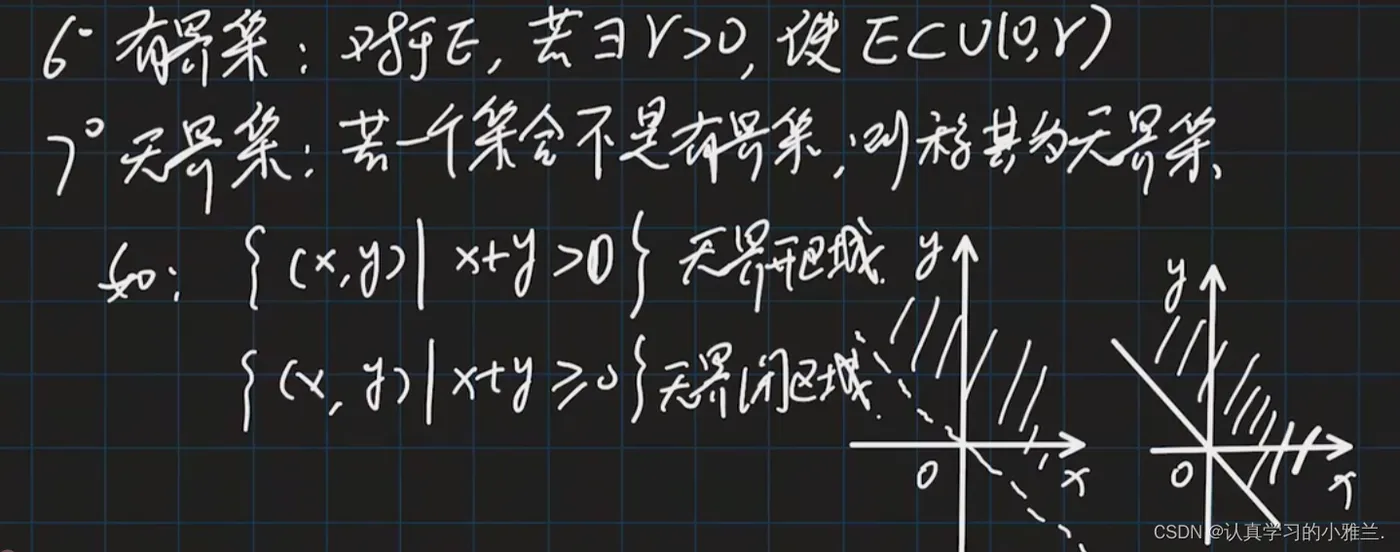 6° 有界集：对于E, 若∃r>0, 使E⊂U(0,r)
7° 无界集：若一个集合不是有界集，则称其为无界集、
如： {(x,y)| x+y>0} 无界开区域.
{(x,y)|x+y≥0}无界闭区域.
y y
0 x 0 x
CSDN @认真学习的小雅兰.